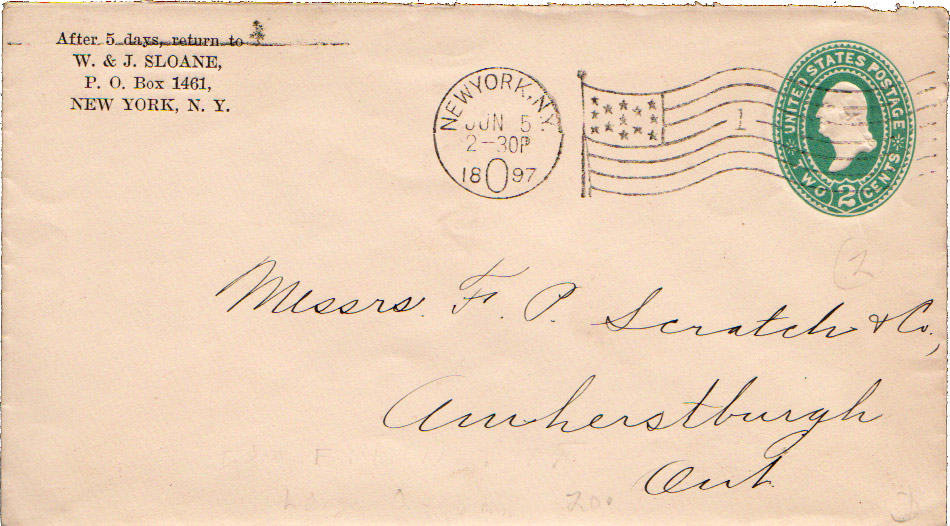 After 5 days, return to
W. & J. SLOANE,
P. O. Box 1461,
NEW YORK, N. Y.
NEW YORK, N.Y.
JUN 5
2-30P
1897
O
1
UNITED STATES POSTAGE
TWO 2 CENTS
Messrs. F. P. Scratch & Co.,
Amherstburgh
Ont